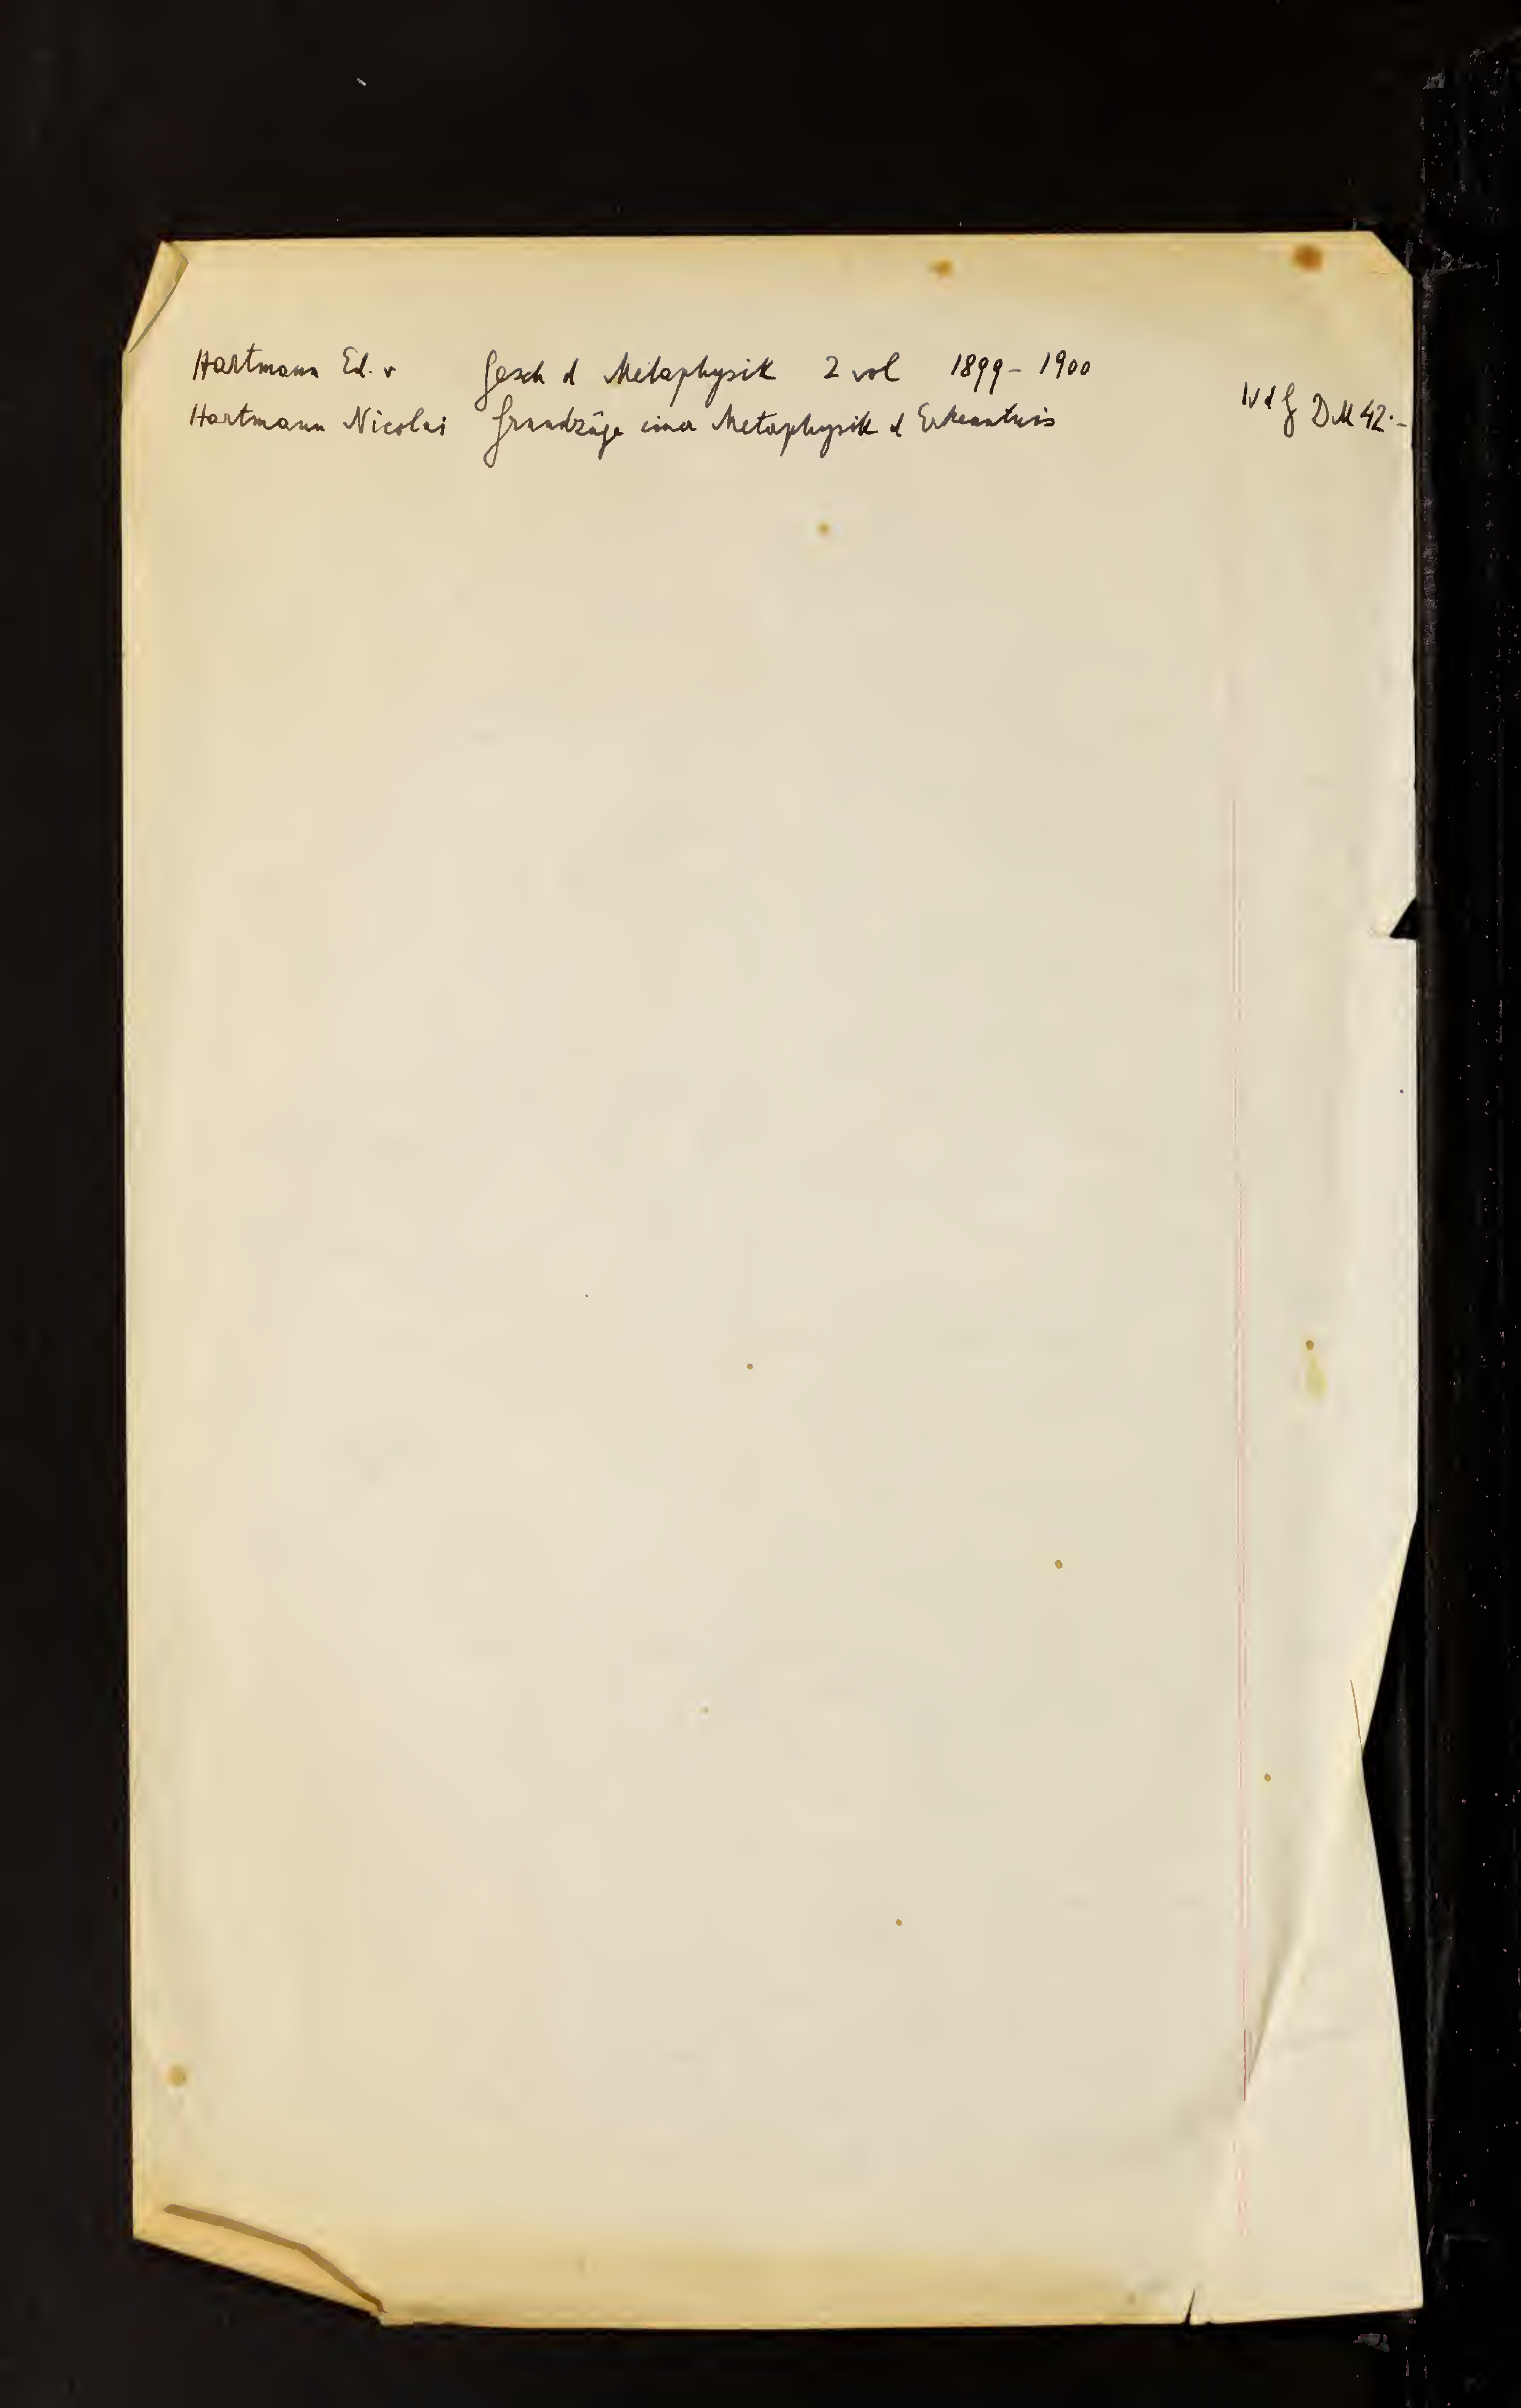 Hartmann Ed. v Gesch d Metaphysik 2 vol 1899 - 1900
Hartmann Nicolai Grundzüge einer Metaphysik d Erkenntnis W d G DM 42.-